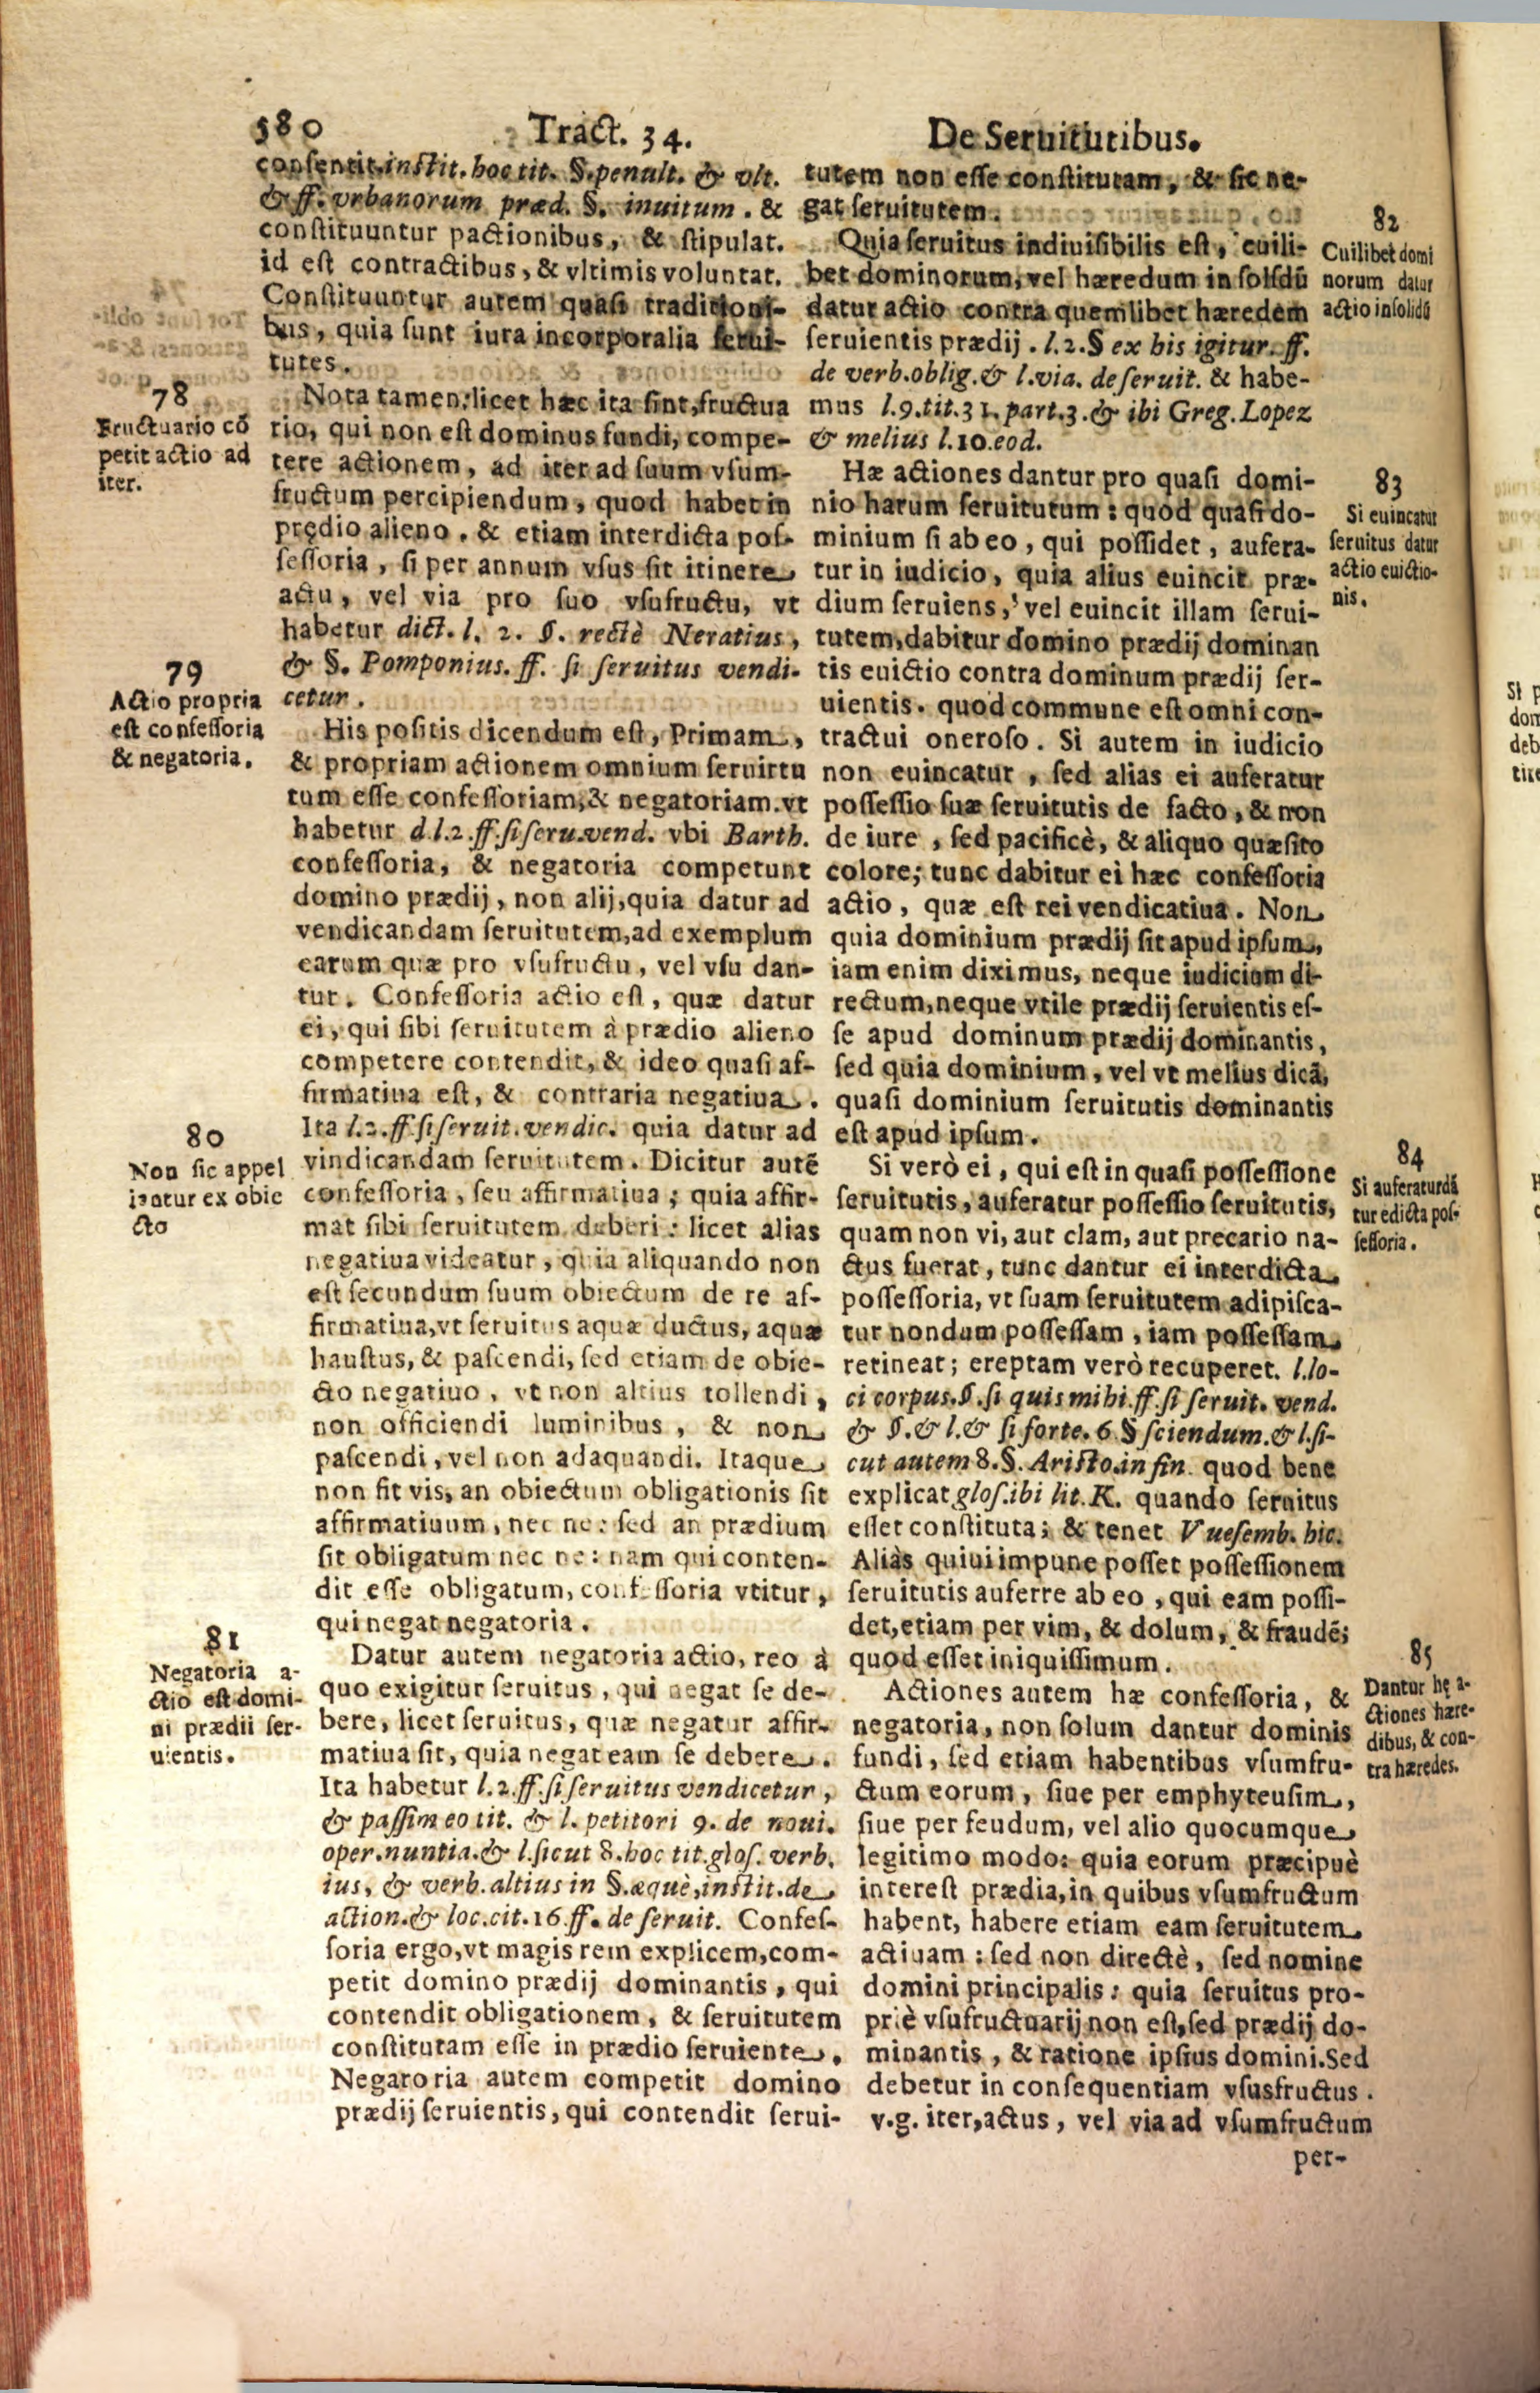 580
Tract. 34.
De Seruitutibus.
consentit. instit. hoc tit. §. penult. & vlt.
& ff. vrbanorum præd. §. inuitum. &
constituuntur pactionibus, & stipulat.
id est contractibus, & vltimis voluntat.
Constituuntur autem quasi traditioni-
bus, quia sunt iura incorporalia serui-
tutes.
78
Fructuario cō
petit actio ad
iter.
Nota tamen; licet hæc ita sint, fructua
rio, qui non est dominus fundi, compe-
tere actionem, ad iter ad suum vsum-
fructum percipiendum, quod habet in
prędio alieno. & etiam interdicta pos-
sessoria, si per annum vsus sit itinere,
actu, vel via pro suo vsufructu, vt
habetur dict. l. 2. §. rectè Neratius,
& §. Pomponius. ff. si seruitus vendi-
cetur.
79
Actio propria
est confessoria
& negatoria.
His positis dicendum est, Primam,
& propriam actionem omnium seruitu
tum esse confessoriam, & negatoriam. vt
habetur d. l. 2. ff. si seru. vend. vbi Barth.
confessoria, & negatoria competunt
domino prædij, non alij, quia datur ad
vendicandam seruitutem, ad exemplum
earum quæ pro vsufructu, vel vsu dan-
tur. Confessoria actio est, quæ datur
ei, qui sibi seruitutem à prædio alieno
competere contendit, & ideo quasi af-
firmatiua est, & contraria negatiua.
Ita l. 2. ff. si seruit. vendic. quia datur ad
80
Non sic appel
latur ex obie
cto
vindicandam seruitutem. Dicitur autē
confessoria, seu affirmatiua; quia affir-
mat sibi seruitutem deberi: licet alias
negatiua videatur, quia aliquando non
est secundum suum obiectum de re af-
firmatiua, vt seruitus aquæ ductus, aquæ
haustus, & pascendi, sed etiam de obie-
cto negatiuo, vt non altius tollendi,
non officiendi luminibus, & non
pascendi, vel non adaquandi. Itaque
non fit vis, an obiectum obligationis sit
affirmatiuum, nec ne: sed an prædium
sit obligatum nec ne: nam qui conten-
dit esse obligatum, confessoria vtitur,
qui negat negatoria.
81
Negatoria a-
ctio est domi-
ni prædii ser-
uientis.
Datur autem negatoria actio, reo à
quo exigitur seruitus, qui negat se de-
bere, licet seruitus, quæ negatur affir-
matiua sit, quia negat eam se debere.
Ita habetur l. 2. ff. si seruitus vendicetur,
& passim eo tit. & l. petitori 9. de noui.
oper. nuntia. & l. sicut 8. hoc tit. glos. verb.
ius, & verb. altius in §. æquè, instit. de
action. & loc. cit. 16. ff. de seruit. Confes-
soria ergo, vt magis rem explicem, com-
petit domino prædij dominantis, qui
contendit obligationem, & seruitutem
constitutam esse in prædio seruiente.
Negatoria autem competit domino
prædij seruientis, qui contendit serui-
tutem non esse constitutam, & sic ne-
gat seruitutem.
82
Cuilibet domi
norum datur
actio insolidū
Quia seruitus indiuisibilis est, cuili-
bet dominorum, vel hæredum in solidū
datur actio contra quemlibet hæredem
seruientis prædij. l. 2. § ex his igitur. ff.
de verb. oblig. & l. via. de seruit. & habe-
mus l. 9. tit. 31. part. 3. & ibi Greg. Lopez
& melius l. 10. eod.
83
Si euincatur
seruitus datur
actio euictio-
nis.
Hæ actiones dantur pro quasi domi-
nio harum seruitutum: quod quasi do-
minium si ab eo, qui possidet, aufera-
tur in iudicio, quia alius euincit præ-
dium seruiens, vel euincit illam serui-
tutem, dabitur domino prædij dominan
tis euictio contra dominum prædij ser-
uientis. quod commune est omni con-
tractui oneroso. Si autem in iudicio
non euincatur, sed alias ei auferatur
possessio suæ seruitutis de facto, & non
de iure, sed pacificè, & aliquo quæsito
colore; tunc dabitur ei hæc confessoria
actio, quæ est rei vendicatiua. Non
quia dominium prædij sit apud ipsum,
iam enim diximus, neque iudicium di-
rectum, neque vtile prædij seruientis es-
se apud dominum prædij dominantis,
sed quia dominium, vel vt melius dicā,
quasi dominium seruitutis dominantis
est apud ipsum.
84
Si auferatur dā
tur edicta pos-
sessoria.
Si verò ei, qui est in quasi possessione
seruitutis, auferatur possessio seruitutis,
quam non vi, aut clam, aut precario na-
ctus fuerat, tunc dantur ei interdicta
possessoria, vt suam seruitutem adipisca-
tur nondum possessam, iam possessam
retineat; ereptam verò recuperet. l. lo-
ci corpus. §. si quis mihi. ff. si seruit. vend.
& §. & l. & si forte. 6 § sciendum. & l. si-
cut autem 8. §. Aristo. in fin. quod bene
explicat glos. ibi lit. K. quando seruitus
esset constituta; & tenet Vuesemb. hic.
Aliàs quiui impune posset possessionem
seruitutis auferre ab eo, qui eam possi-
det, etiam per vim, & dolum, & fraudē;
quod esset iniquissimum.
85
Dantur hę a-
ctiones hære-
dibus, & con-
tra hæredes.
Actiones autem hæ confessoria, &
negatoria, non solum dantur dominis
fundi, sed etiam habentibus vsumfru-
ctum eorum, siue per emphyteusim,
siue per feudum, vel alio quocumque
legitimo modo: quia eorum præcipuè
interest prædia, in quibus vsumfructum
habent, habere etiam eam seruitutem
actiuam: sed non directè, sed nomine
domini principalis: quia seruitus pro-
priè vsufructuarij non est, sed prædij do-
minantis, & ratione ipsius domini. Sed
debetur in consequentiam vsusfructus.
v.g. iter, actus, vel via ad vsumfructum
per-